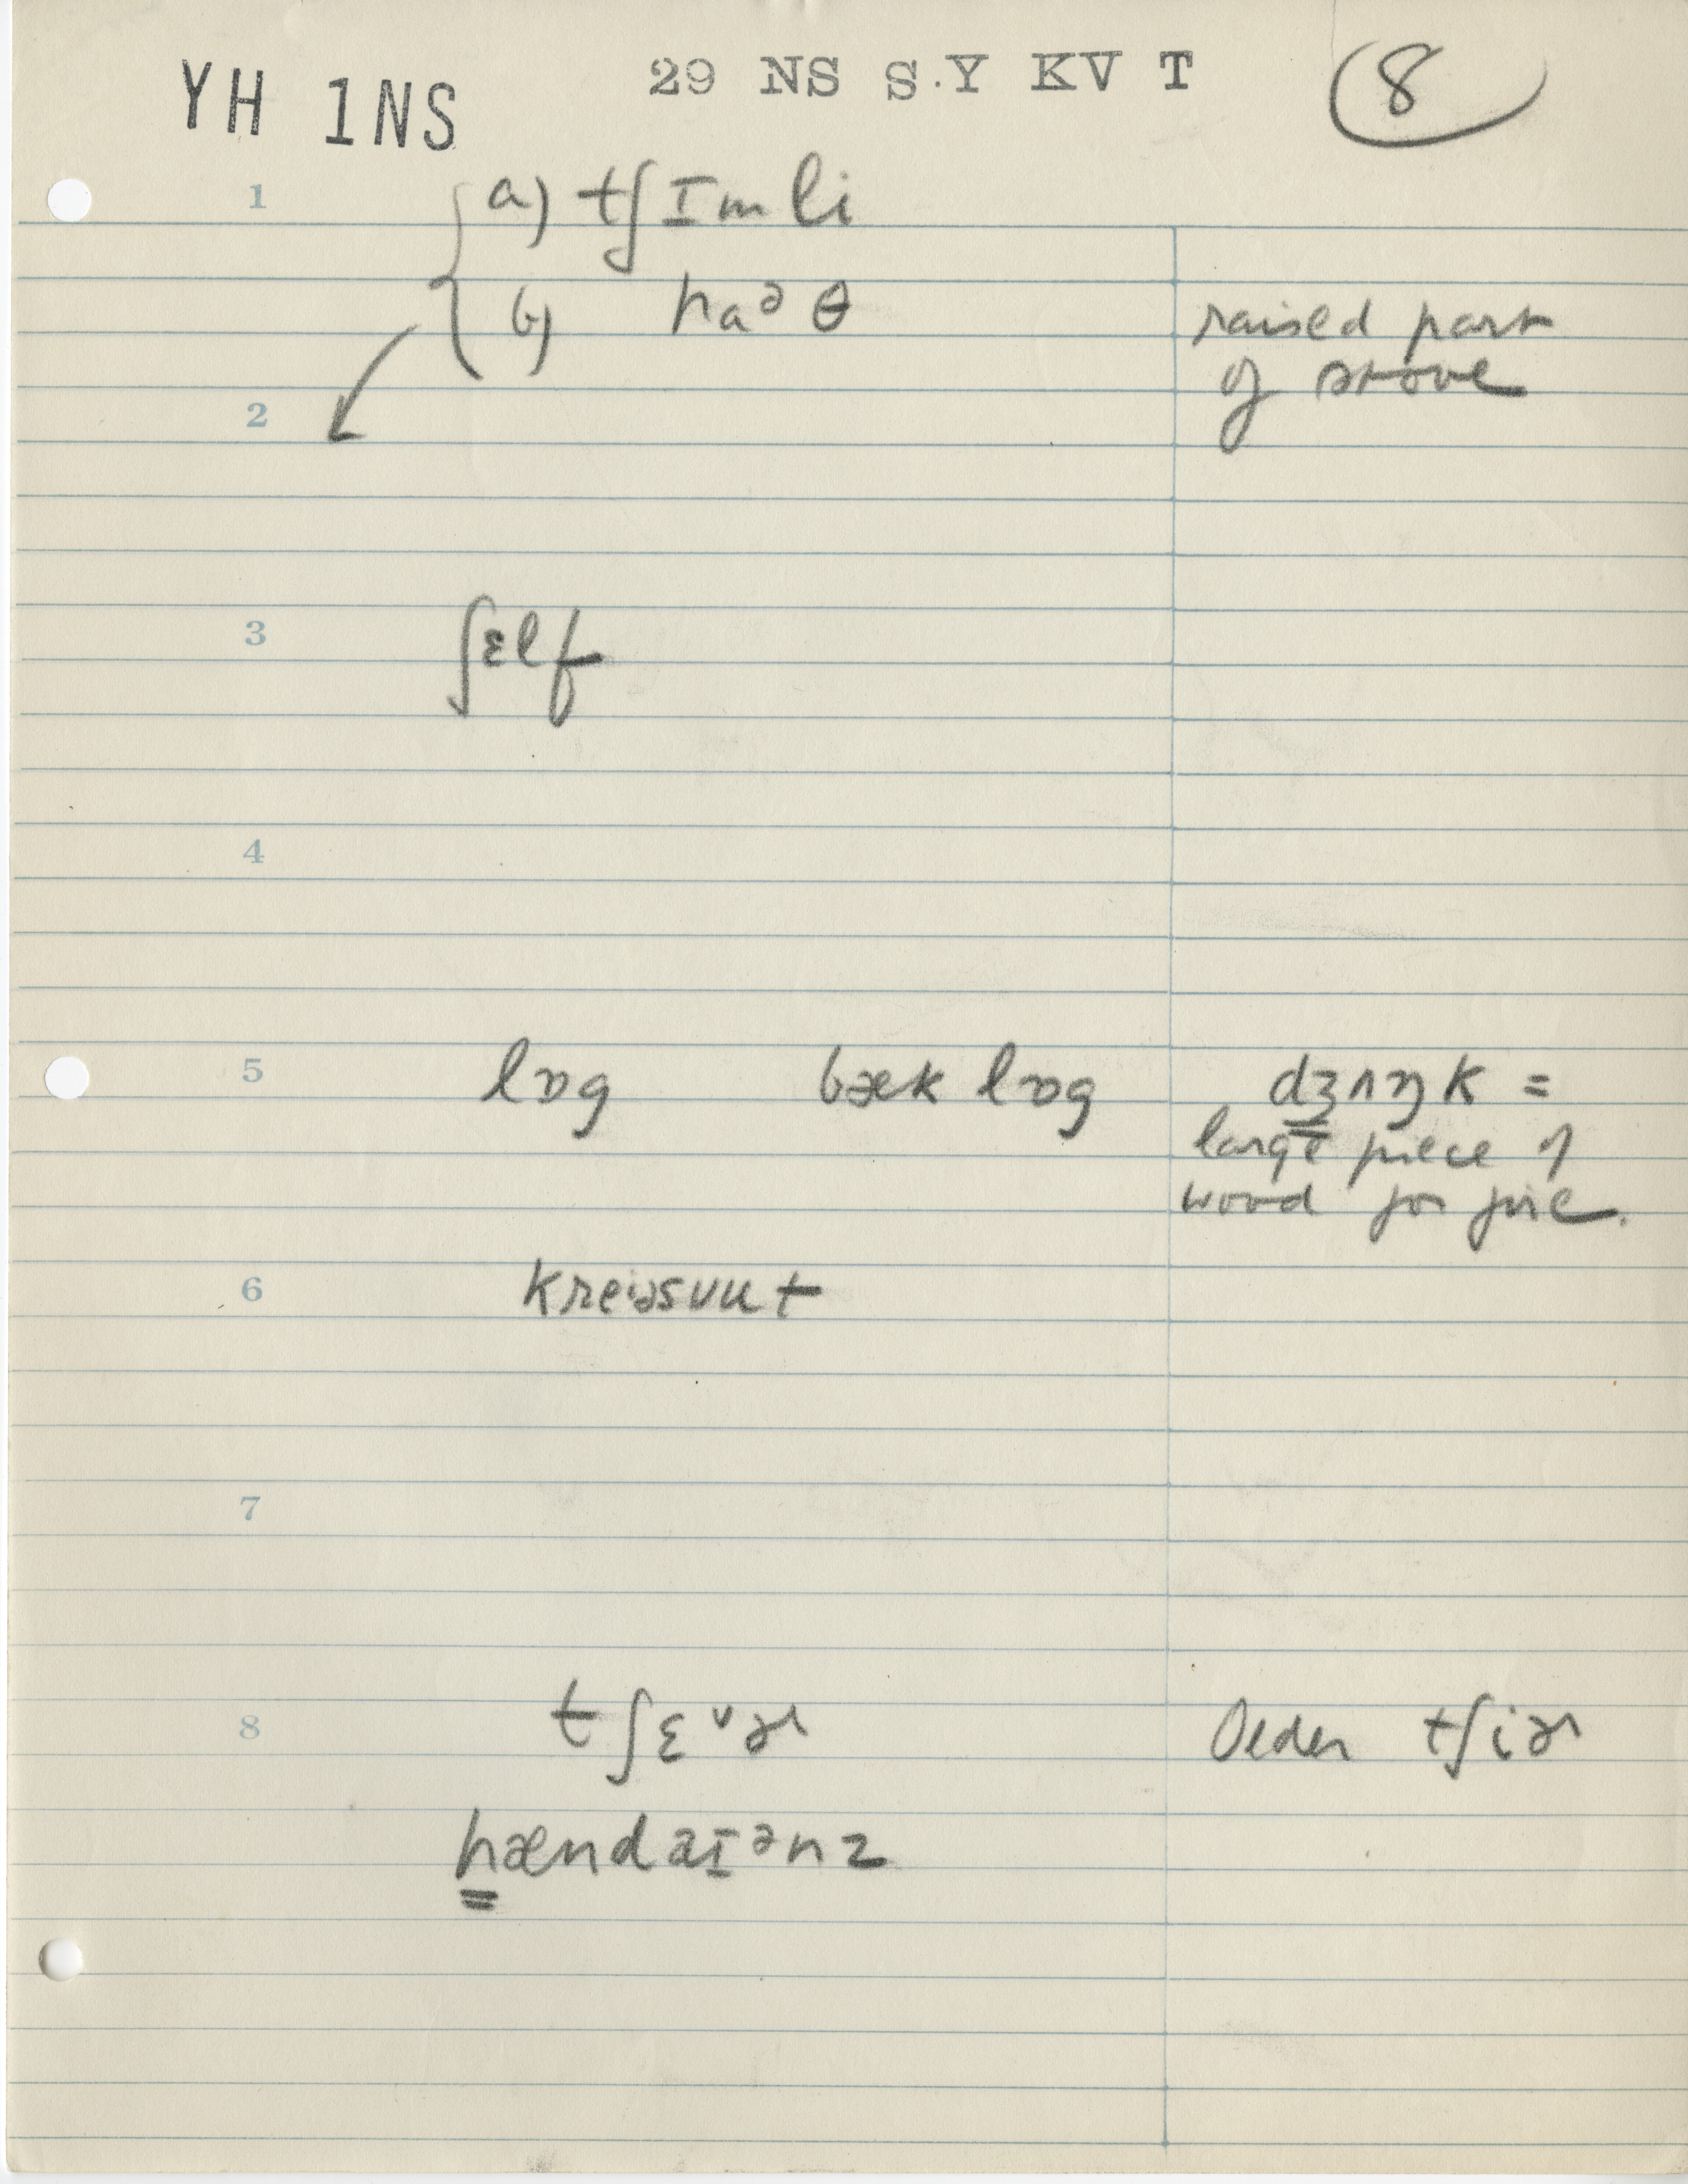 YH 1NS 29 NS S.Y KV T 8
1 a) tʃɪmli
b) haᵊθ raised part
2 of stove
3 ʃɛlf
4
5 lɒg bæk lɒg dʒʌŋk =
large piece of
wood for fire.
6
7
8 tʃɛᵛɚ Older tʃiɚ
hændaɪᵊnz